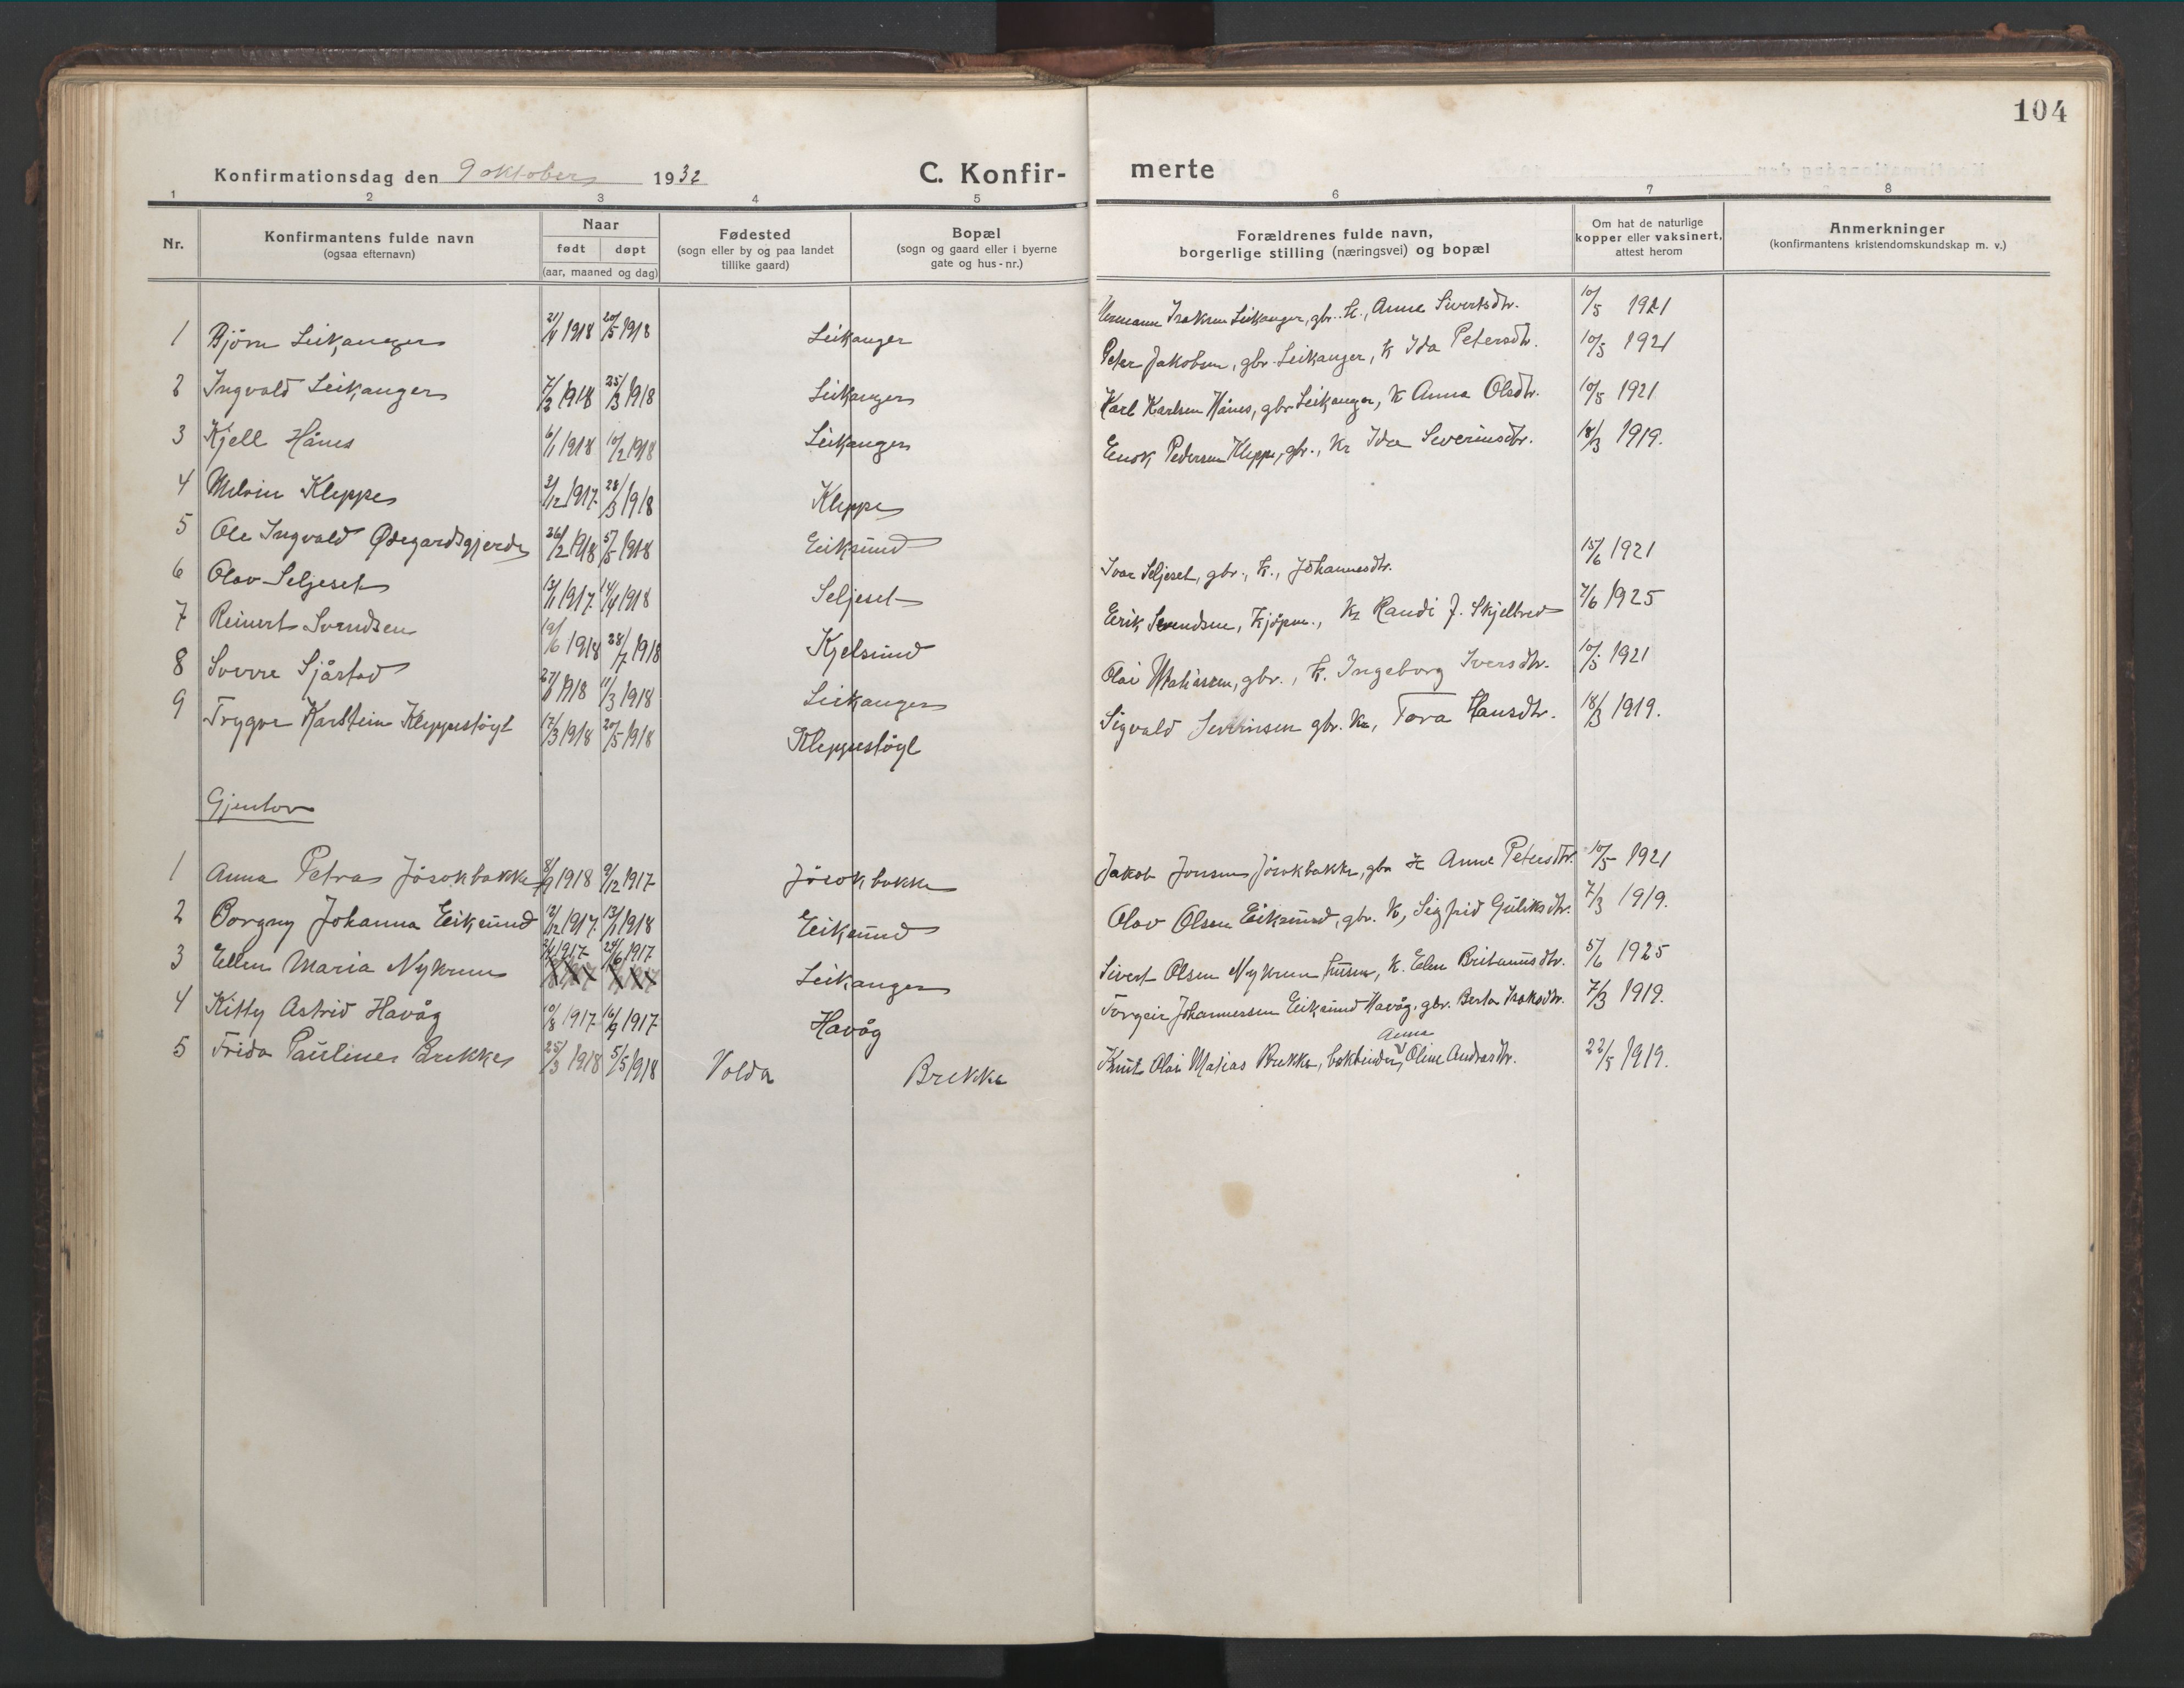 104
Konfirmationsdag den 9 oktober 1932 C. Konfir- merte
1 2 3 4 5 6 7 8
Nr. Konfirmantens fulde navn (ogsaa efternavn) Naar født døpt (aar, maaned og dag) Fødested (sogn eller by og paa landet tillike gaard) Bopæl (sogn og gaard eller i byerne gate og hus-nr.) Forældrenes fulde navn, borgerlige stilling (næringsvei) og bopæl Om hat de naturlige kopper eller vaksinert, attest herom Anmerkninger (konfirmantens kristendomskundskap m. v.)
1 Bjørn Leikanger 21/4 1918 20/5 1918 Leikanger Hermann Isaksen Leikanger, gbr. K., Anna Sivertsdtr. 10/5 1921
2 Ingvald Leikanger 7/2 1918 25/3 1918 Leikanger Peter Jakobsen, gbr. Leikanger, K Ida Petersdtr. 10/5 1921
3 Kjell Hånes 6/1 1918 10/2 1918 Leikanger Karl Karlsen Hånes, gbr Leikanger, K Anna Olsdtr. 10/5 1921
4 Melvin Kleppe /12 1917 28/3 1918 Kleppe Enok Pedersen Kleppe, gbr., K Ida Severinsdtr. 18/3 1919.
5 Ole Ingvald Ødegardsgjerde 26/2 1918 5/5 1918 Eiksund
6 Olav Seljeset 1917 14/4 1918 Seljeset Ivar Seljeset, gbr., K., Johannesdtr. 15/6 1921
7 Reinert Svendsen 19/6 1918 28/7 1918 Kjelsund Erik Svendsen, Kjøpm., K Randi J. Skjeltred 2/6 1925
8 Sverre Sjåstad 1918 11/3 1918 Leikanger Olai Matiassen, gbr., K. Ingeborg Iversdtr. 10/5 1921
9 Trygve Karstein Kleppestøyl 17/3 1918 20/5 1918 Kleppestøyl Sigvald Severinsen gbr. K, Tora Hansdtr. 18/3 1919.
Gjentor
1 Anna Petra Jøsokbakke 8/9 1918 9/12 1917 Jøsokbakke Jakob Jonsen Jøsokbakke, gbr K Anne Petersdtr. 10/5 1921
2 Borgny Johanna Eiksund 12/12 1917 13/1 1918 Eiksund Olav Olsen Eiksund, gbr. K, Sigfrid Guliksdtr. 7/3 1919.
3 Ellen Maria Nykrem 2/4 1917 24/6 1917 Leikanger Sivert Olsen Nykrem husm, K. Elen Britanusdtr. 5/6 1925
4 Kitty Astrid Havåg 10/8 1917 16/9 1917 Havåg Torgeir Johannessen Eiksund Havåg. gbr. Berta Isaksdtr. 7/3 1919.
5 Frida Pauline Brekke 25/3 1918 5/5 1918 Volda Brekke Knut Olai Matias Brekke, bokbinder, Anna Oline Andrasdtr. 22/5 1919.